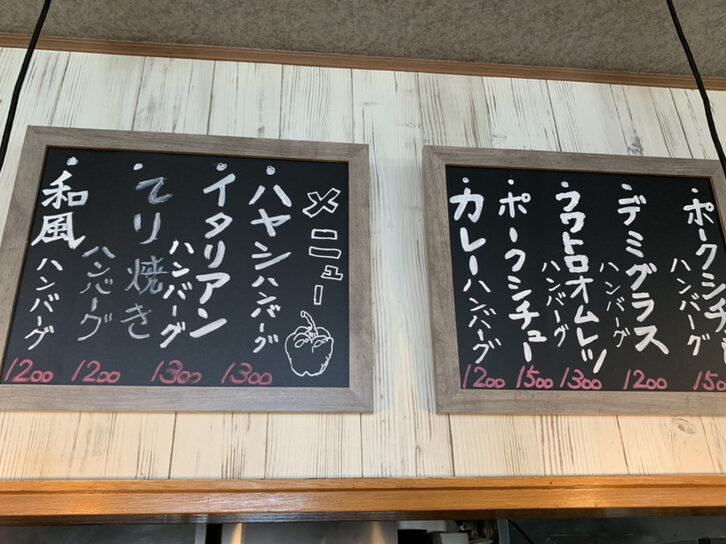 メニュー
・ハヤシハンバーグ 1300
・イタリアンハンバーグ 1300
・てり焼きハンバーグ 1200
・和風ハンバーグ 1200
・ポークシチ
ハンバーグ
・デミグラスハンバーグ 1200
・ウワトロオムレツハンバーグ 1300
・ポークシチュー 1500
・カレーハンバーグ 1200